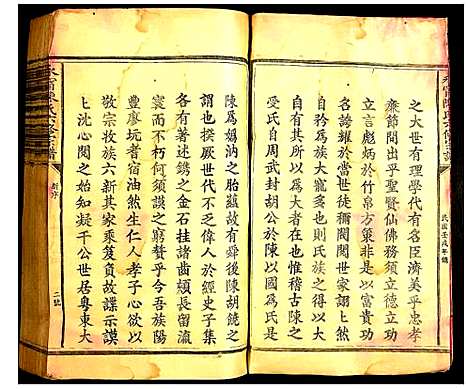 之大世有理學代有名臣濟美乎忠孝
廉節間出乎聖賢仙佛務須立德立功
立言彪炳於竹帛方策非是以富貴功
名為族大寵多也則氏族之得以大
其為大者當世徒稱閥閱世家詡上然
自來為大者也在也惟稽古陳之
受氏自周武封胡公於陳以國為氏是
陳為媯汭之胎蘊故有舜後陳胡鐃之
謂也揆厥世代不乏偉人於經史子集
以及省府縣之金石挂諸齒頰長留流
而為不朽何須謨之窮贅乎今吾族陽
豐廖坑者宿油然生仁人孝子心欲以
敬宗妆族六新其乘笈貢故諜示誤
上沈心閱之始知凝千公世居粵東大
民國壬戌年鐫
新序
二號